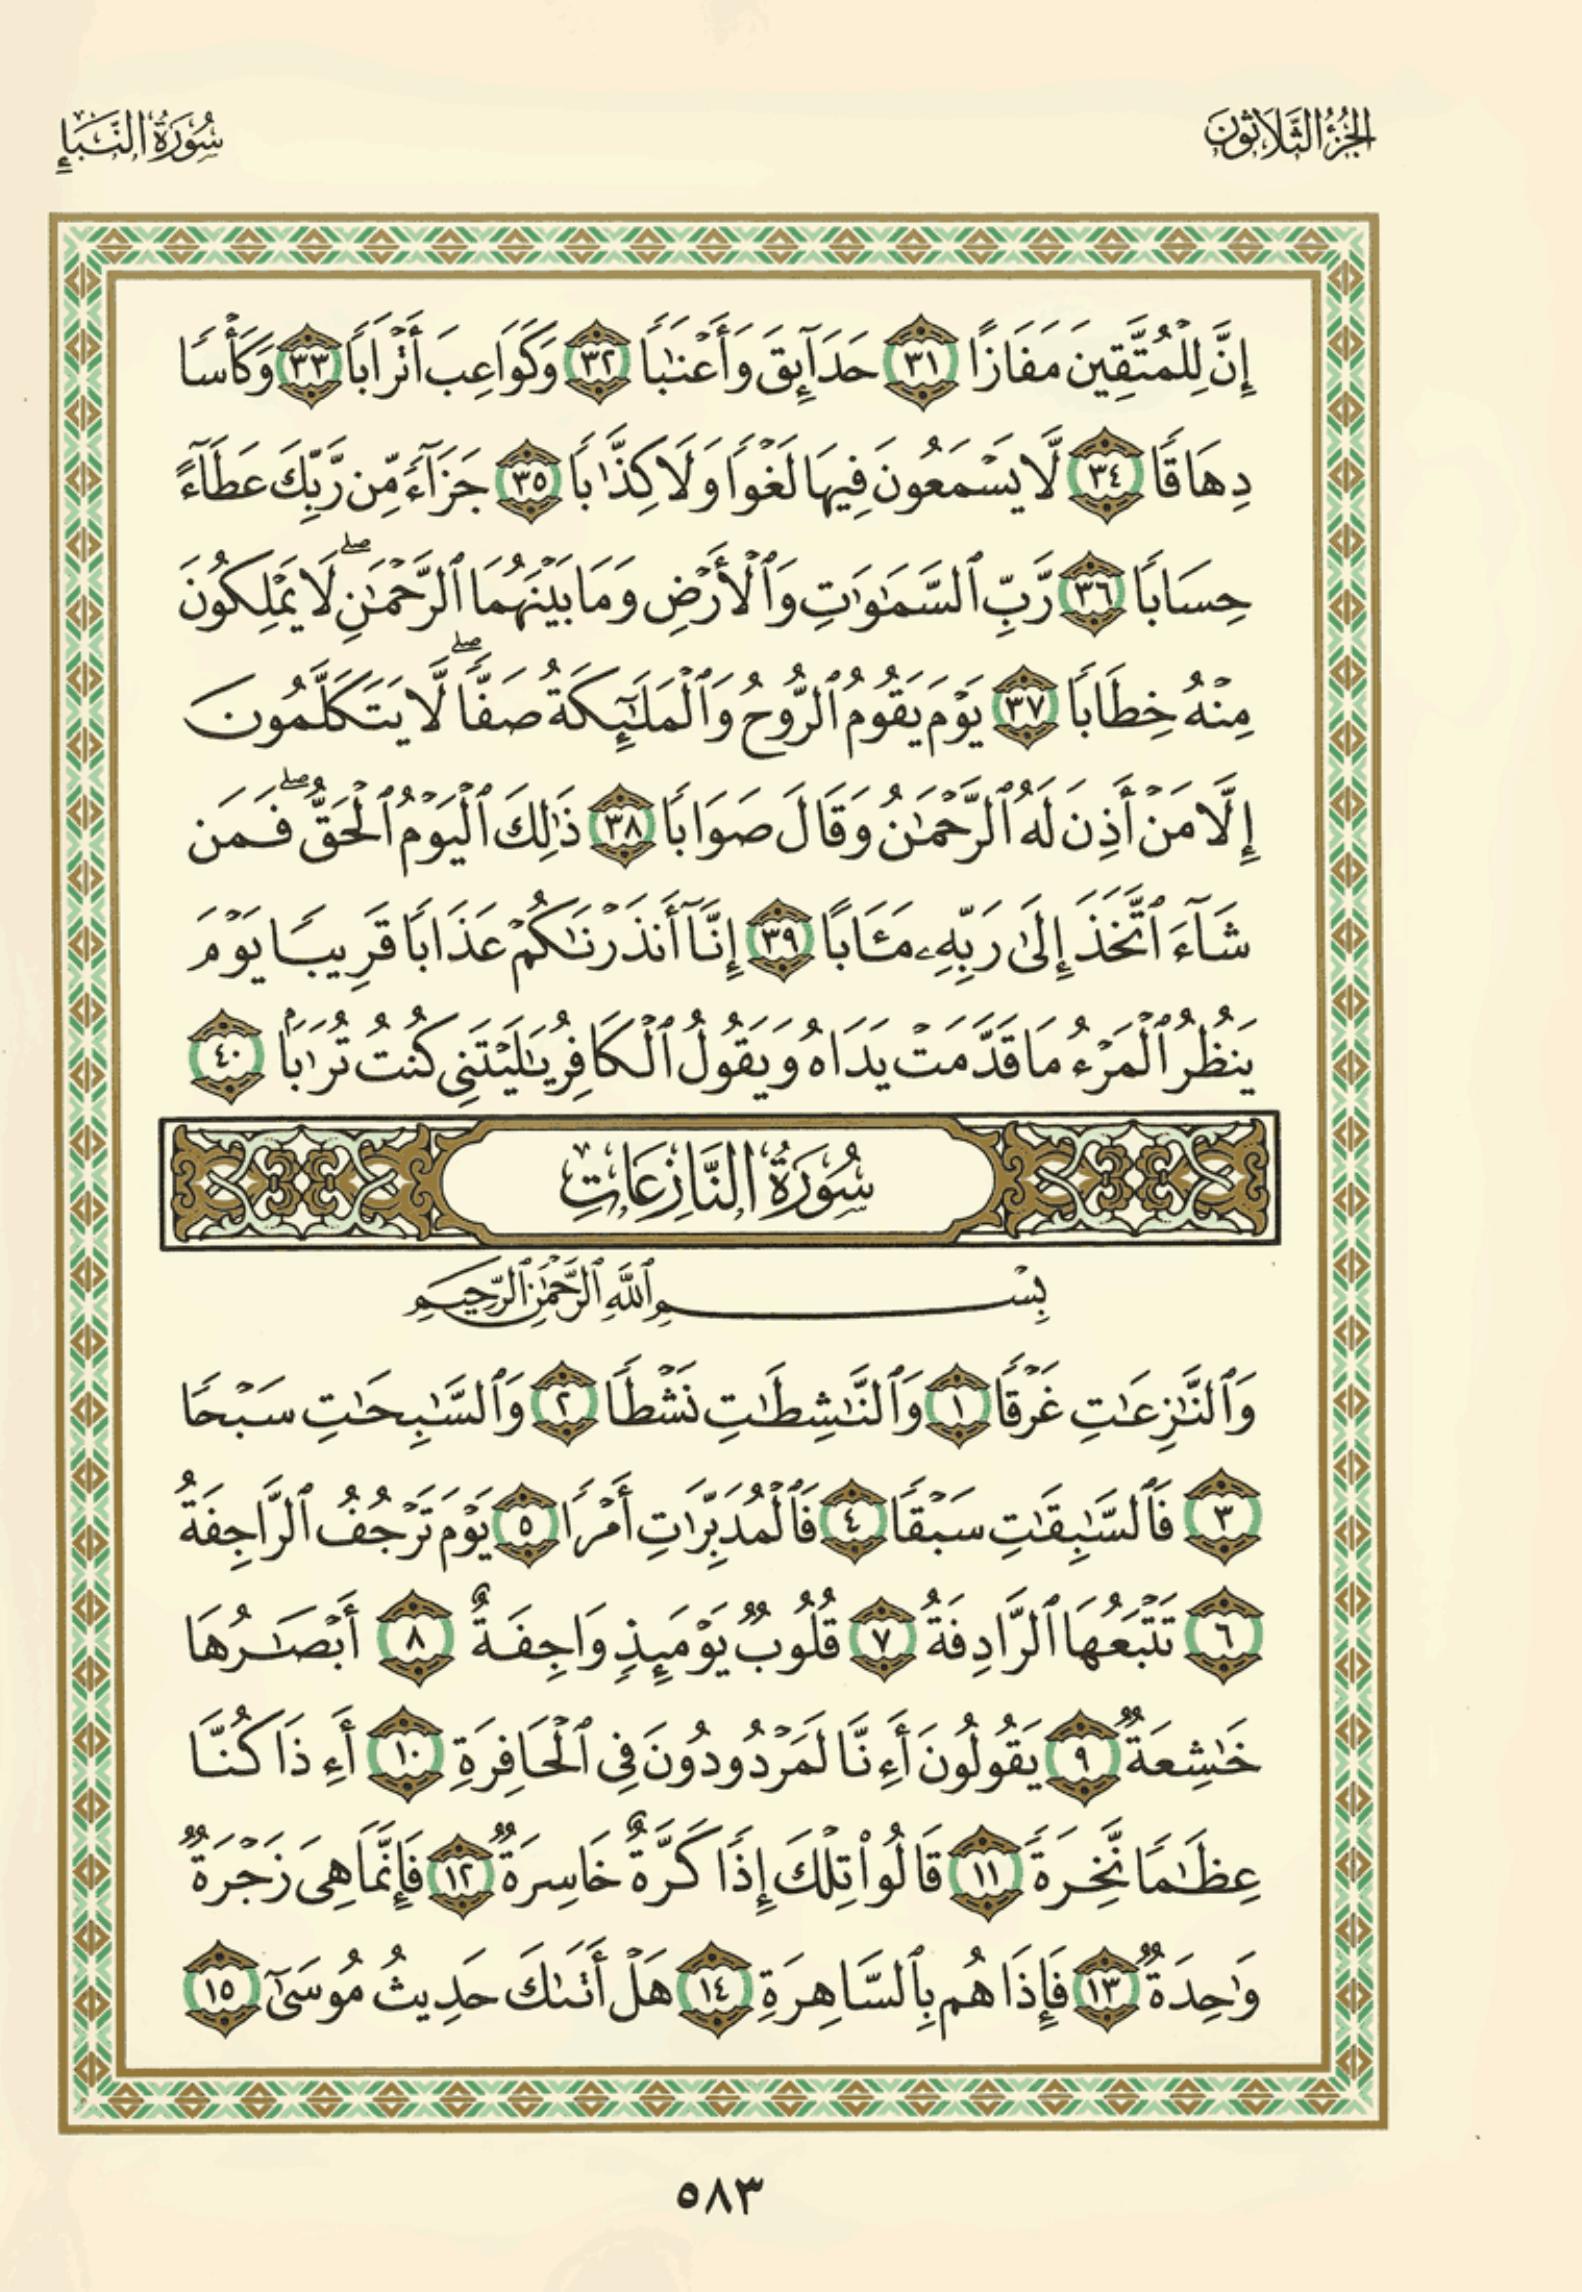 الجُزْءُ الثَّلَاثُونَ
سُورَةُ النَّبَإِ
إِنَّ لِلْمُتَّقِينَ مَفَازًا ٣١ حَدَآئِقَ وَأَعْنَٰبًا ٣٢ وَكَوَاعِبَ أَتْرَابًا ٣٣ وَكَأْسًا
دِهَاقًا ٣٤ لَّا يَسْمَعُونَ فِيهَا لَغْوًا وَلَا كِذَّٰبًا ٣٥ جَزَآءً مِّن رَّبِّكَ عَطَآءً
حِسَابًا ٣٦ رَّبِّ ٱلسَّمَٰوَٰتِ وَٱلْأَرْضِ وَمَا بَيْنَهُمَا ٱلرَّحْمَٰنِۖ لَا يَمْلِكُونَ
مِنْهُ خِطَابًا ٣٧ يَوْمَ يَقُومُ ٱلرُّوحُ وَٱلْمَلَٰٓئِكَةُ صَفًّاۖ لَّا يَتَكَلَّمُونَ
إِلَّا مَنْ أَذِنَ لَهُ ٱلرَّحْمَٰنُ وَقَالَ صَوَابًا ٣٨ ذَٰلِكَ ٱلْيَوْمُ ٱلْحَقُّۖ فَمَن
شَآءَ ٱتَّخَذَ إِلَىٰ رَبِّهِۦ مَـَٔابًا ٣٩ إِنَّآ أَنذَرْنَٰكُمْ عَذَابًا قَرِيبًا يَوْمَ
يَنظُرُ ٱلْمَرْءُ مَا قَدَّمَتْ يَدَاهُ وَيَقُولُ ٱلْكَافِرُ يَٰلَيْتَنِى كُنتُ تُرَٰبًۢا ٤٠
سُورَةُ النَّازِعَاتِ
بِسْمِ ٱللَّهِ ٱلرَّحْمَٰنِ ٱلرَّحِيمِ
وَٱلنَّٰزِعَٰتِ غَرْقًا ١ وَٱلنَّٰشِطَٰتِ نَشْطًا ٢ وَٱلسَّٰبِحَٰتِ سَبْحًا
٣ فَٱلسَّٰبِقَٰتِ سَبْقًا ٤ فَٱلْمُدَبِّرَٰتِ أَمْرًا ٥ يَوْمَ تَرْجُفُ ٱلرَّاجِفَةُ
٦ تَتْبَعُهَا ٱلرَّادِفَةُ ٧ قُلُوبٌ يَوْمَئِذٍ وَاجِفَةٌ ٨ أَبْصَٰرُهَا
خَٰشِعَةٌ ٩ يَقُولُونَ أَءِنَّا لَمَرْدُودُونَ فِى ٱلْحَافِرَةِ ١٠ أَءِذَا كُنَّا
عِظَٰمًا نَّخِرَةً ١١ قَالُوا۟ تِلْكَ إِذًا كَرَّةٌ خَاسِرَةٌ ١٢ فَإِنَّمَا هِىَ زَجْرَةٌ
وَٰحِدَةٌ ١٣ فَإِذَا هُم بِٱلسَّاهِرَةِ ١٤ هَلْ أَتَىٰكَ حَدِيثُ مُوسَىٰٓ ١٥
٥٨٣